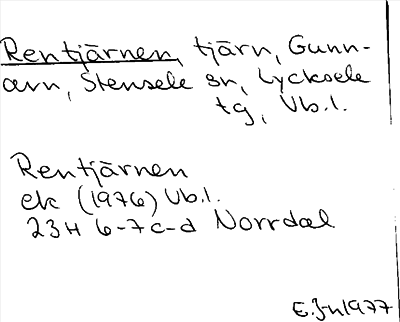 Rentjärnen, tjärn, Gunn-
arn, Stensele sn, Lycksele
tg, Vb.l.
Rentjärnen
ek (1976) Vb.l.
23H 6-7c-d Norrdal
E.Jn 1977